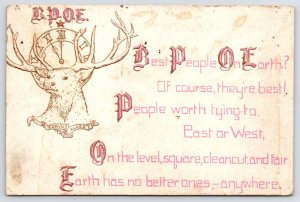 B.P.O.E.
Best People On Earth?
Of course, they're best!
People worth tying-to.
East or West,
On the level, square, clean cut, and fair
Earth has no better ones,-anywhere.